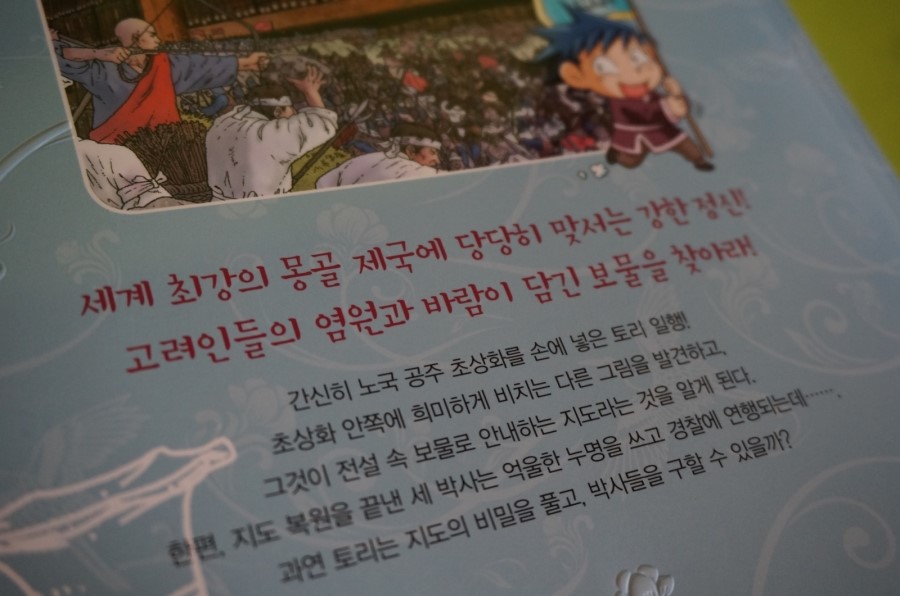 세계 최강의 몽골 제국에 당당히 맞서는 강한 정신!
고려인들의 염원과 바람이 담긴 보물을 찾아라!
간신히 노국 공주 초상화를 손에 넣은 토리 일행!
초상화 안쪽에 희미하게 비치는 다른 그림을 발견하고,
그것이 전설 속 보물로 안내하는 지도라는 것을 알게 된다.
한편, 지도 복원을 끝낸 세 박사는 억울한 누명을 쓰고 경찰에 연행되는데…….
과연 토리는 지도의 비밀을 풀고, 박사들을 구할 수 있을까?